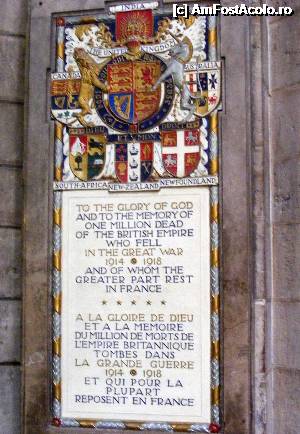 (c) AmFostAcolo.ro
INDIA
THE UNITED KINGDOM
CANADA
AUSTRALIA
DIEU ET MON DROIT
SOUTH·AFRICA
NEW·ZEALAND
NEWFOUNDLAND
TO THE GLORY OF GOD
AND TO THE MEMORY OF
ONE MILLION DEAD
OF THE BRITISH EMPIRE
WHO FELL
IN THE GREAT WAR
1914 1918
AND OF WHOM THE
GREATER PART REST
IN FRANCE
A LA GLOIRE DE DIEU
ET A LA MEMOIRE
DU MILLION DE MORTS DE
L'EMPIRE BRITANNIQUE
TOMBES DANS
LA GRANDE GUERRE
1914 1918
ET QUI POUR LA
PLUPART
REPOSENT EN FRANCE